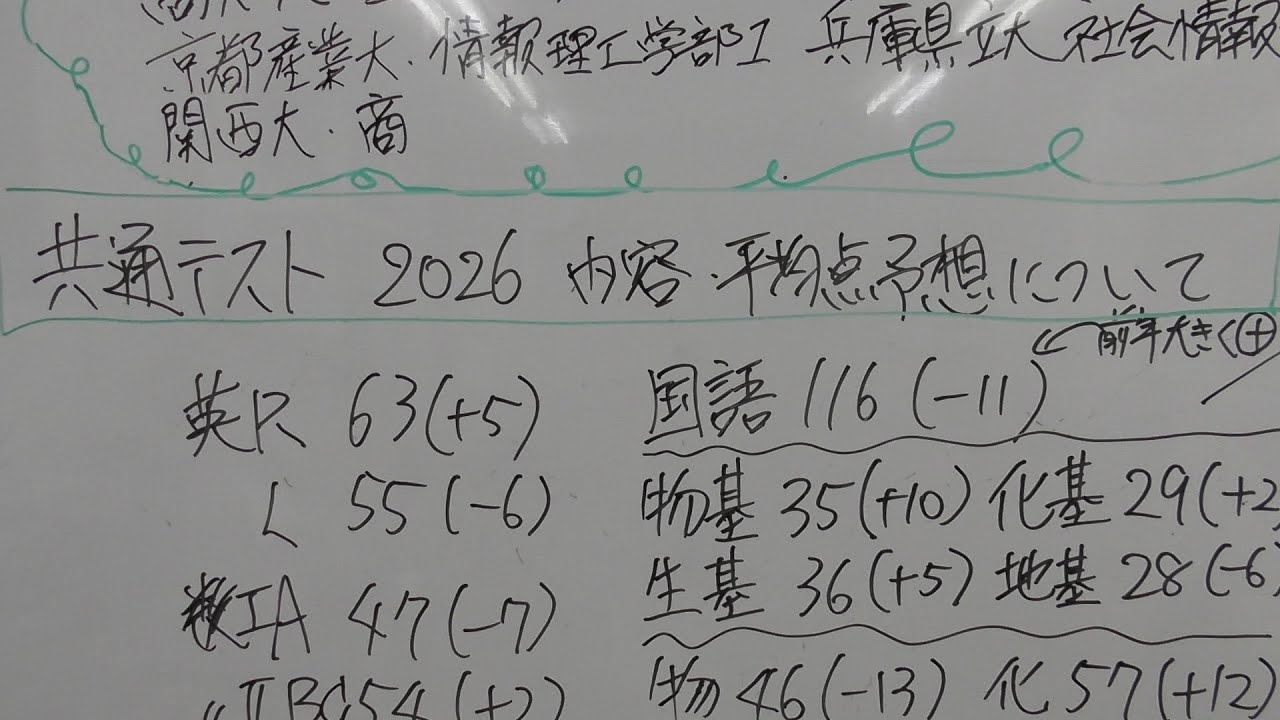 京都産業大・情報理工学部I 兵庫県立大 社会情報
関西大・商
共通テスト 2026 内容・平均点予想について
前年大きく⊕
英R 63(+5)
L 55(-6)
数IA 47(-7)
〃IIBC54(+2)
国語 116(-11)
物基 35(+10) 化基 29(+2
生基 36(+5) 地基 28(-6)
物 46(-13) 化 57(+12)